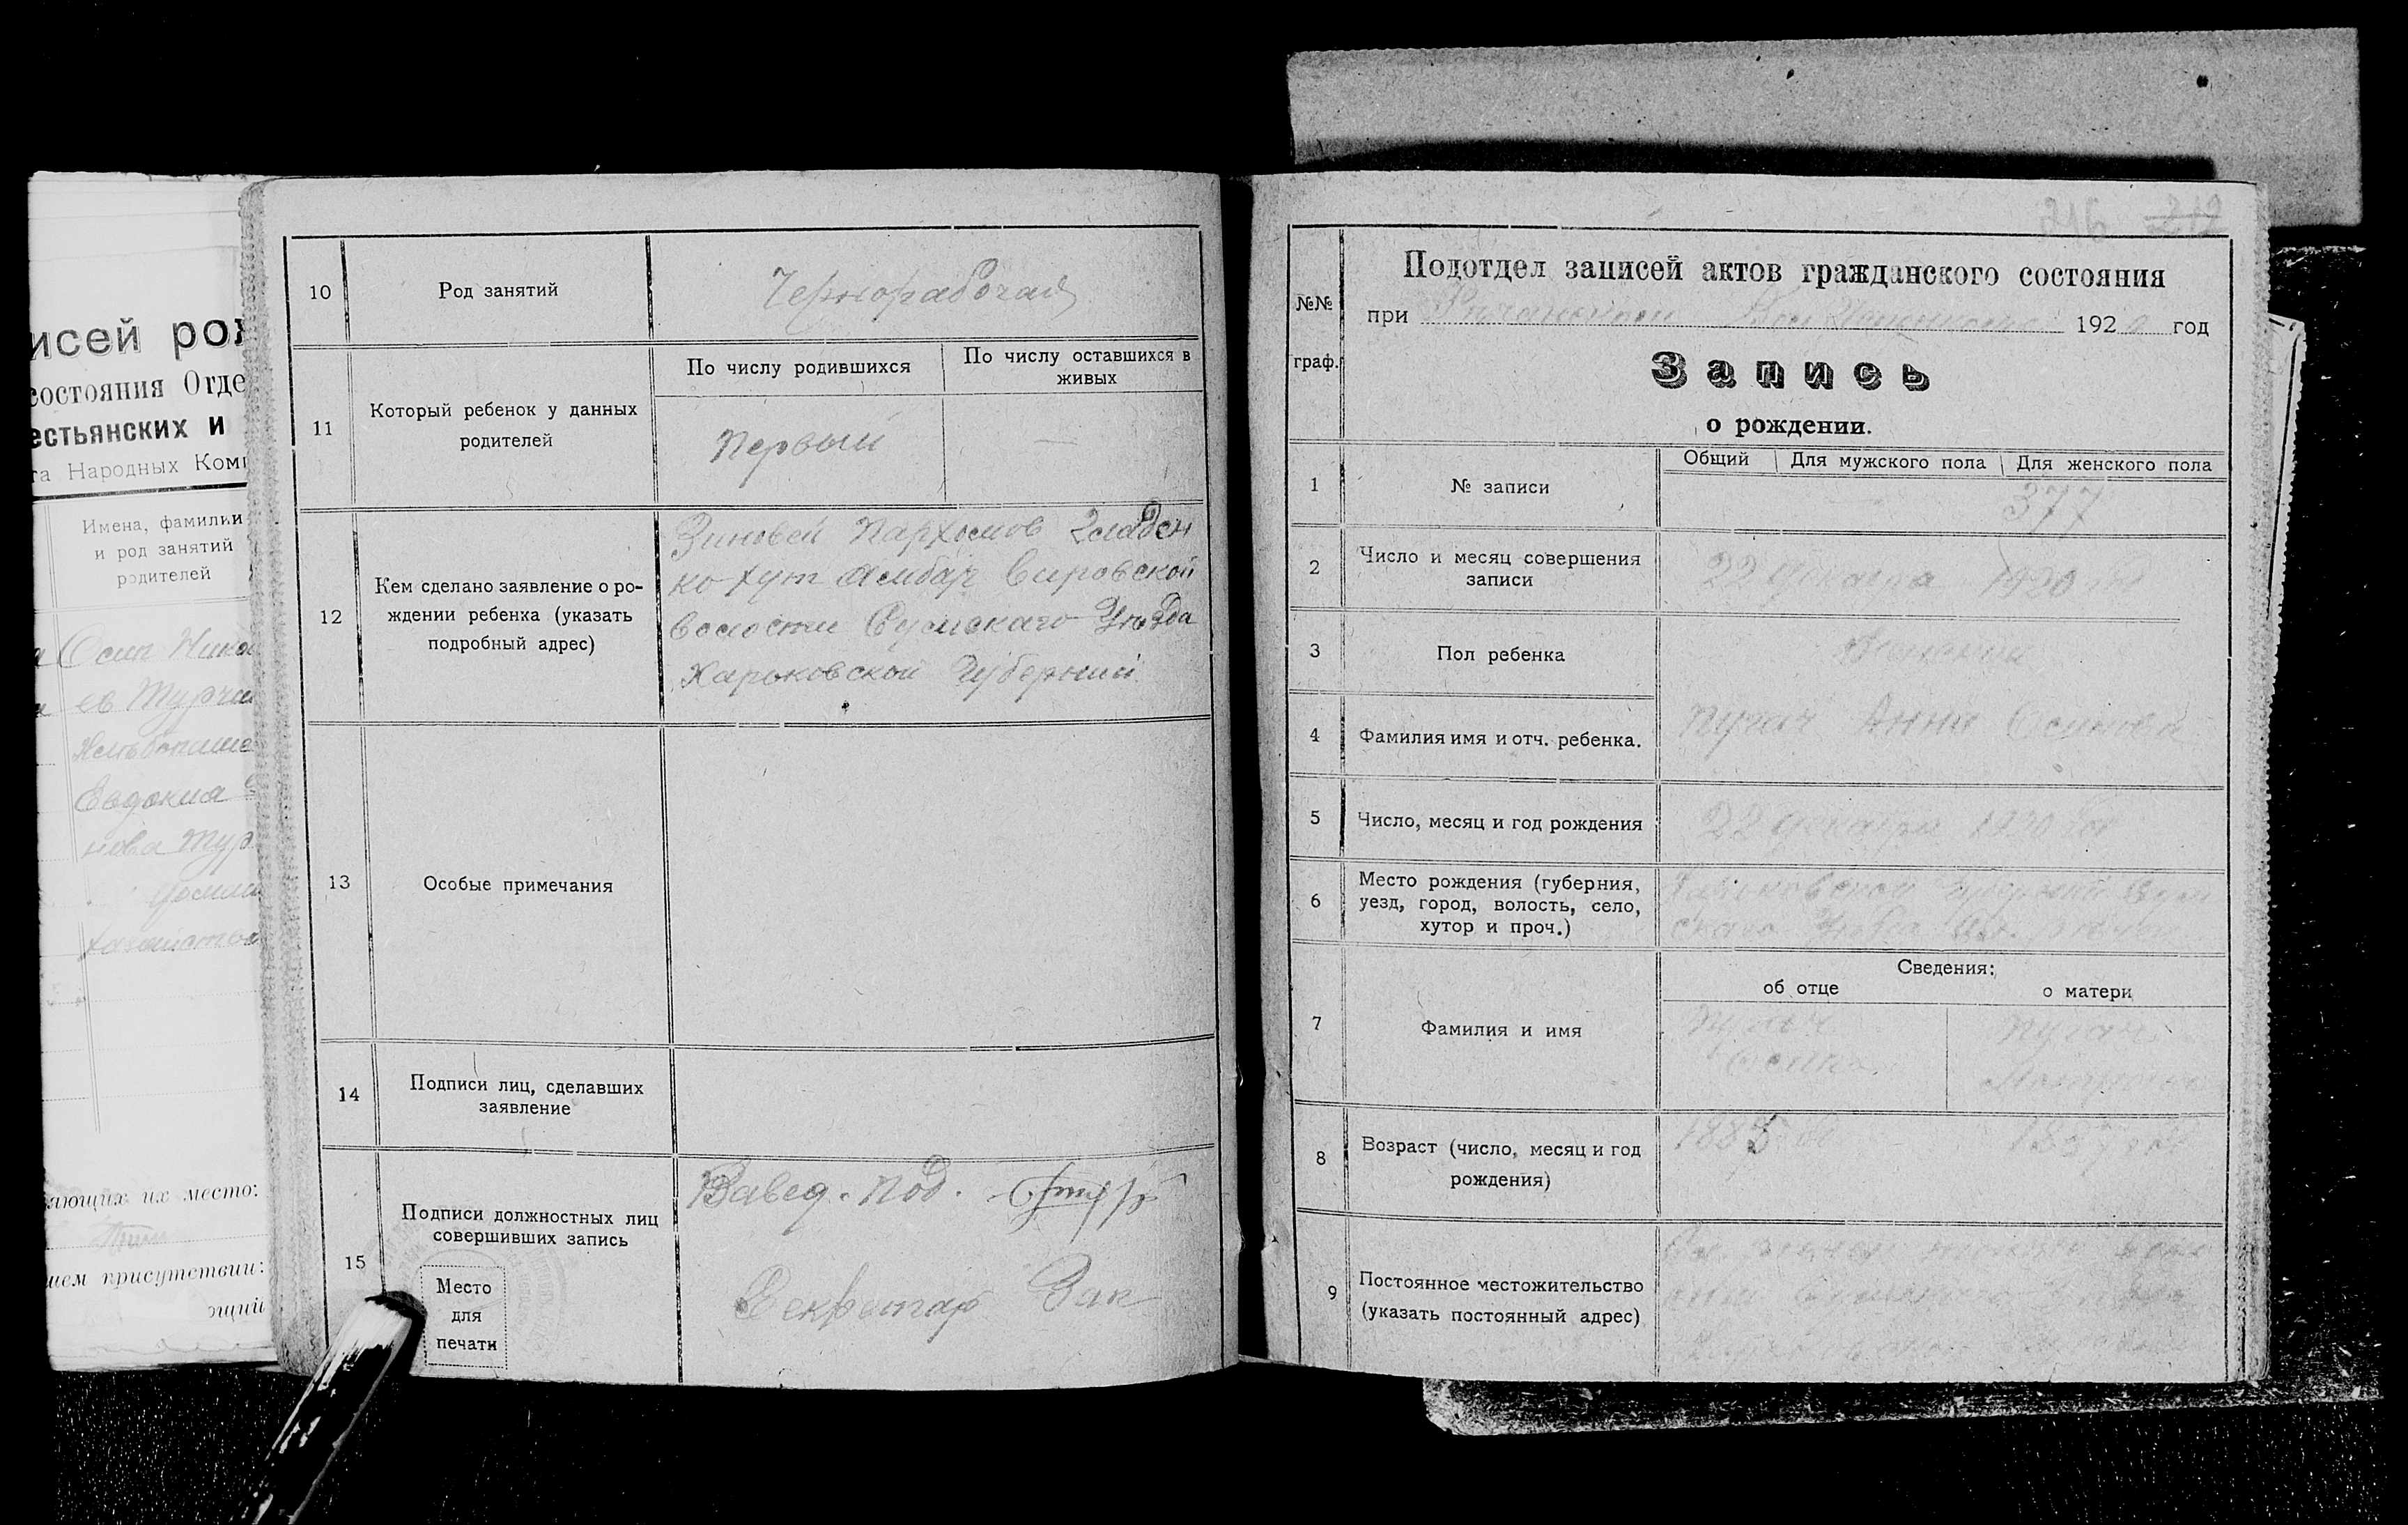 исей рож
состояния Отде
естьянских и
та Народных Коми
Имена, фамилии
и род занятий
родителей
Осип Никол
ев Турчи
Хлѣбопаше
Евдокия
нова Тур
Домаш
хозяйство
яющих их место:
шем присутствии:
ющий
10
Род занятий
Чернорабочая
11
Который ребенок у данных
родителей
По числу родившихся
По числу оставшихся в
живых
Первый
—
12
Кем сделано заявление о ро-
ждении ребенка (указать
подробный адрес)
Зиновей Пархомов Гладен
ко хут Амбар Вировской
волости Сумскаго Уѣзда
Харьковской Губернии
13
Особые примечания
14
Подписи лиц, сделавших
заявление
15
Подписи должностных лиц
совершивших запись
Место
для
печати
Завед. Под.
Секретар Зап
216 212
№№
граф.
Подотдел записей актов гражданского состояния
при 1920 год
Запись
о рождении.
1
№ записи
Общий Для мужского пола Для женского пола
— 377
2
Число и месяц совершения
записи
22 Декабра 1920
3
Пол ребенка
Женский
4
Фамилия имя и отч. ребенка.
Пугач Анна Осипова
5
Число, месяц и год рождения
22 Декабра 1920
6
Место рождения (губерния,
уезд, город, волость, село,
хутор и проч.)
Харьковской Губернии Сум
скаго
7
Фамилия и имя
Сведения:
об отце
о матери
Пугач
Осип
Пугач
8
Возраст (число, месяц и год
рождения)
1885
9
Постоянное местожительство
(указать постоянный адрес)